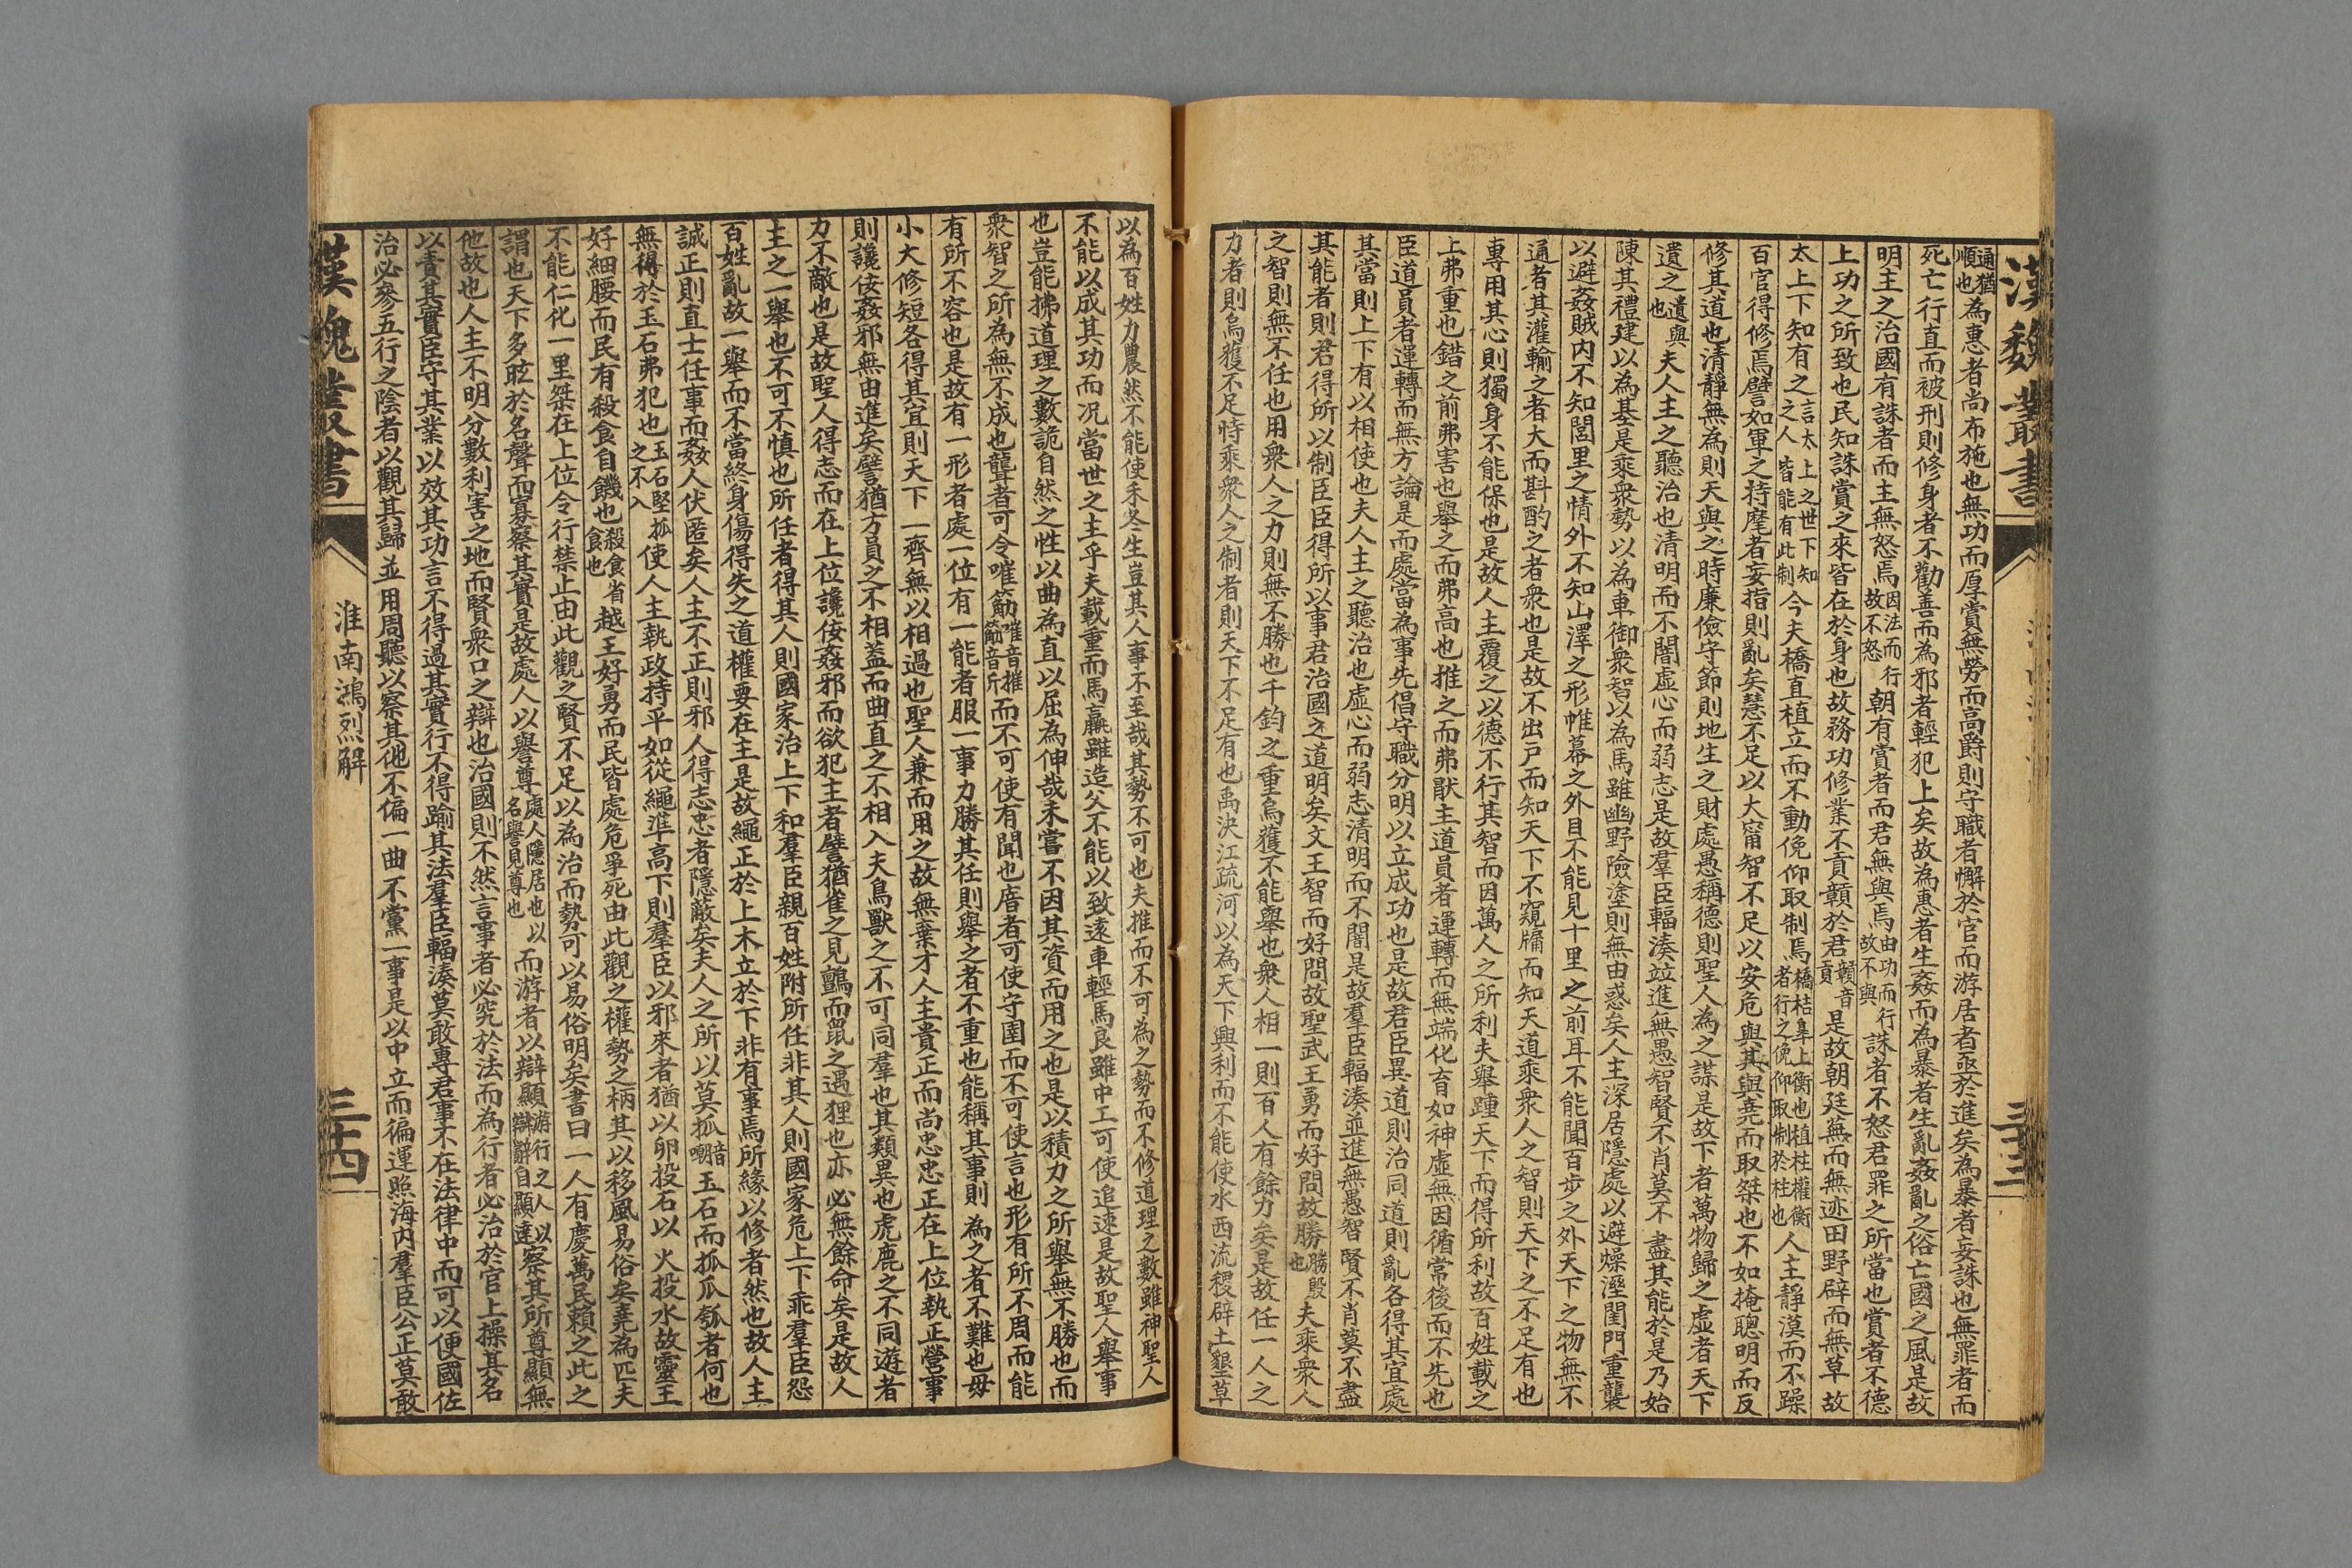 漢魏叢書
三十三
通猶順也為惠者尚布施也無功而厚賞無勞而高爵則守職者懈於官而游居者亟於進矣為暴者妄誅也無罪者而
死亡行直而被刑則修身者不勸善而為邪者輕犯上矣故為惠者生姦而為暴者生亂姦亂之俗亡國之風是故
明主之治國有誅者而主無怒焉因法而行故不怒朝有賞者而君無與焉由功而行故不與誅者不怒君罪之所當也賞者不德
上功之所致也民知誅賞之來皆在於身也故務功修業不貢贛於君贛音貢是故朝廷蕪而無迹田野辟而無草故
太上下知有之言太上之世下知之人皆能有此制今夫橋直植立而不動俛仰取制焉橋桔臯上衡也植柱權衡者行之俛仰取制於柱也人主靜漠而不躁
百官得修焉譬如軍之持麾者妄指則亂矣慧不足以大甯智不足以安危與其與堯而取桀也不如掩聰明而反
修其道也清靜無為則天與之時廉儉守節則地生之財處愚稱德則聖人為之謀是故下者萬物歸之虛者天下
遺之遺與也夫人主之聽治也清明而不闇虛心而弱志是故羣臣輻湊竝進無愚智賢不肖莫不盡其能於是乃始
陳其禮建以為基是乘衆勢以為車御衆智以為馬雖幽野險塗則無由惑矣人主深居隱處以避燥溼閨門重襲
以避姦賊內不知閭里之情外不知山澤之形帷幕之外目不能見十里之前耳不能聞百步之外天下之物無不
通者其灌輸之者大而斟酌之者衆也是故不出戶而知天下不窺牖而知天道乘衆人之智則天下之不足有也
專用其心則獨身不能保也是故人主覆之以德不行其智而因萬人之所利夫舉踵天下而得所利故百姓載之
上弗重也錯之前弗害也舉之而弗高也推之而弗猒主道員者運轉而無端化育如神虛無因循常後而不先也
臣道員者運轉而無方論是而處當為事先倡守職分明以立成功也是故君臣異道則治同道則亂各得其宜處
其當則上下有以相使也夫人主之聽治也虛心而弱志清明而不闇是故羣臣輻湊並進無愚智賢不肖莫不盡
其能者則君得所以制臣臣得所以事君治國之道明矣文王智而好問故聖武王勇而好問故勝勝殷也夫乘衆人
之智則無不任也用衆人之力則無不勝也千鈞之重烏獲不能舉也衆人相一則百人有餘力矣是故任一人之
力者則烏獲不足恃乘衆人之制者則天下不足有也禹決江疏河以為天下興利而不能使水西流稷辟土墾草
以為百姓力農然不能使禾冬生豈其人事不至哉其勢不可也夫推而不可為之勢而不修道理之數雖神聖人
不能以成其功而況當世之主乎夫載重而馬羸雖造父不能以致遠車輕馬良雖中工可使追速是故聖人舉事
也豈能拂道理之數詭自然之性以曲為直以屈為伸哉未嘗不因其資而用之也是以積力之所舉無不勝也而
衆智之所為無不成也聾者可令嗺筋嗺音摧筋音斤而不可使有聞也瘖者可使守圉而不可使言也形有所不周而能
有所不容也是故有一形者處一位有一能者服一事力勝其任則舉之者不重也能稱其事則為之者不難也毋
小大修短各得其宜則天下一齊無以相過也聖人兼而用之故無棄才人主貴正而尚忠忠正在上位執正營事
則讒佞姦邪無由進矣譬猶方員之不相蓋而曲直之不相入夫鳥獸之不可同羣也其類異也虎鹿之不同遊者
力不敵也是故聖人得志而在上位讒佞姦邪而欲犯主者譬猶雀之見鸇而鼠之遇狸也亦必無餘命矣是故人
主之一舉也不可不慎也所任者得其人則國家治上下和羣臣親百姓附所任非其人則國家危上下乖羣臣怨
百姓亂故一舉而不當終身傷得失之道權要在主是故繩正於上木立於下非有事焉所緣以修者然也故人主
誠正則直士任事而姦人伏匿矣人主不正則邪人得志忠者隱蔽矣夫人之所以莫抓音嘲玉石而抓瓜瓠者何也
無得於玉石弗犯也玉石堅抓之不入使人主執政持平如從繩準高下則羣臣以邪來者猶以卵投石以火投水故靈王
好細腰而民有殺食自饑也殺食省食也越王好勇而民皆處危爭死由此觀之權勢之柄其以移風易俗矣堯為匹夫
不能仁化一里桀在上位令行禁止由此觀之賢不足以為治而勢可以易俗明矣書曰一人有慶萬民賴之此之
謂也天下多眩於名聲而寡察其實是故處人以譽尊處人隱居也以名譽見尊也而游者以辯顯游行之人以辯辭自顯達察其所尊顯無
他故也人主不明分數利害之地而賢衆口之辯也治國則不然言事者必究於法而為行者必治於官上操其名
以責其實臣守其業以效其功言不得過其實行不得踰其法羣臣輻湊莫敢專君事不在法律中而可以便國佐
治必參五行之陰者以觀其歸並用周聽以察其他不偏一曲不黨一事是以中立而徧運照海內羣臣公正莫敢
漢魏叢書
淮南鴻烈解
三十四